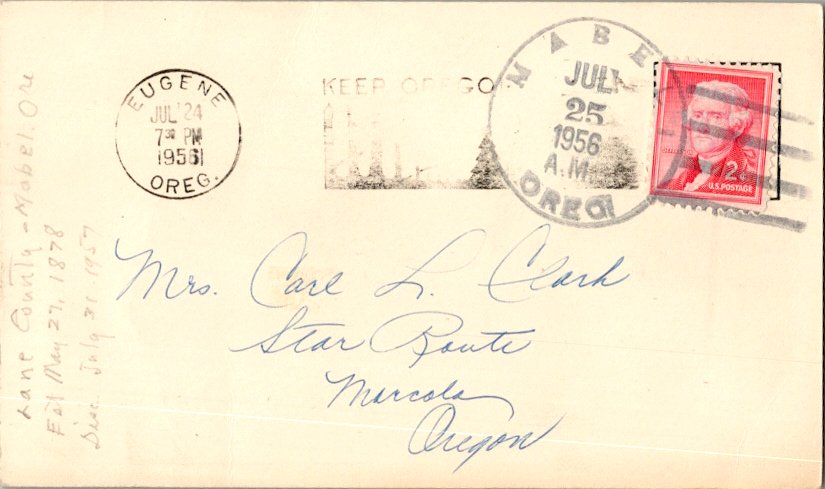 EUGENE
JUL 24
7 30 PM
1956
OREG.
KEEP OREGO
MABE
JUL
25
1956
A.M.
OREG
2¢
U.S. POSTAGE
Mrs. Carl L. Clark
Star Route
Marcola
Oregon
Lane County - Mabel, Ore
Est May 27, 1878
Disc July 31 - 1957